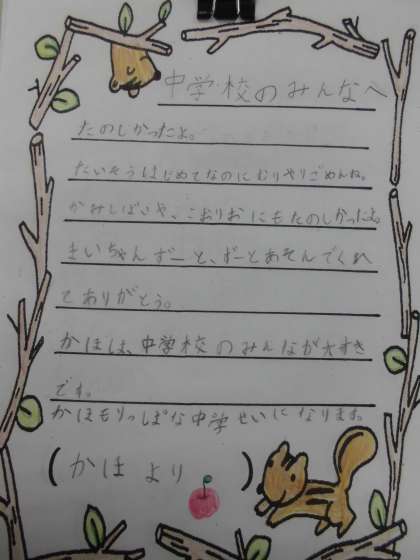 中学校のみんなへ
たのしかったよ。
たいそうはじめてなのにむりやりごめんね。
かみしばいや、こおりおにもたのしかったよ。
まいちゃんずーと、ずーとあそんでくれ
てありがとう。
かほは、中学校のみんなが大すき
です。
かほもりっぱな中学せいになります。
(かほより)